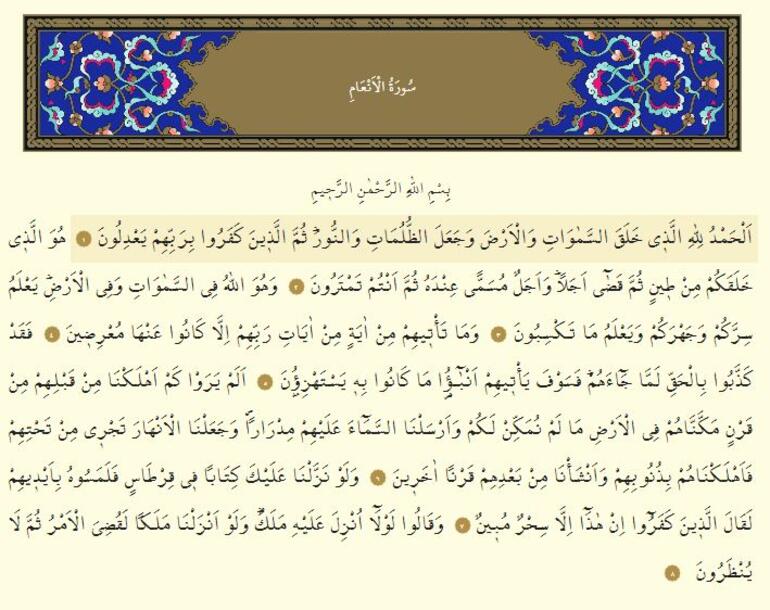 سُورَةُ الْاَنْعَامِ
بِسْمِ اللهِ الرَّحْمٰنِ الرَّح۪يمِ
اَلْحَمْدُ لِلّٰهِ الَّذ۪ي خَلَقَ السَّمٰوَاتِ وَالْاَرْضَ وَجَعَلَ الظُّلُمَاتِ وَالنُّورَۜ ثُمَّ الَّذ۪ينَ كَفَرُوا بِرَبِّهِمْ يَعْدِلُونَ ١ هُوَ الَّذ۪ي
خَلَقَكُمْ مِنْ ط۪ينٍ ثُمَّ قَضٰٓى اَجَلًاۜ وَاَجَلٌ مُسَمًّى عِنْدَهُ ثُمَّ اَنْتُمْ تَمْتَرُونَ ٢ وَهُوَ اللهُ فِي السَّمٰوَاتِ وَفِي الْاَرْضِۜ يَعْلَمُ
سِرَّكُمْ وَجَهْرَكُمْ وَيَعْلَمُ مَا تَكْسِبُونَ ٣ وَمَا تَأْت۪يهِمْ مِنْ اٰيَةٍ مِنْ اٰيَاتِ رَبِّهِمْ اِلَّا كَانُوا عَنْهَا مُعْرِض۪ينَ ٤ فَقَدْ
كَذَّبُوا بِالْحَقِّ لَمَّا جَٓاءَهُمْۜ فَسَوْفَ يَأْت۪يهِمْ اَنْبٰٓؤُ۬ا مَا كَانُوا بِه۪ يَسْتَهْزِؤُ۫نَ ٥ اَلَمْ يَرَوْا كَمْ اَهْلَكْنَا مِنْ قَبْلِهِمْ مِنْ
قَرْنٍ مَكَّنَّاهُمْ فِي الْاَرْضِ مَا لَمْ نُمَكِّنْ لَكُمْ وَاَرْسَلْنَا السَّمَٓاءَ عَلَيْهِمْ مِدْرَارًاۖ وَجَعَلْنَا الْاَنْهَارَ تَجْر۪ي مِنْ تَحْتِهِمْ
فَاَهْلَكْنَاهُمْ بِذُنُوبِهِمْ وَاَنْشَأْنَا مِنْ بَعْدِهِمْ قَرْنًا اٰخَر۪ينَ ٦ وَلَوْ نَزَّلْنَا عَلَيْكَ كِتَابًا ف۪ي قِرْطَاسٍ فَلَمَسُوهُ بِاَيْد۪يهِمْ
لَقَالَ الَّذ۪ينَ كَفَرُٓوا اِنْ هٰذَٓا اِلَّا سِحْرٌ مُب۪ينٌ ٧ وَقَالُوا لَوْلَٓا اُنْزِلَ عَلَيْهِ مَلَكٌۜ وَلَوْ اَنْزَلْنَا مَلَكًا لَقُضِيَ الْاَمْرُ ثُمَّ لَا
يُنْظَرُونَ ٨